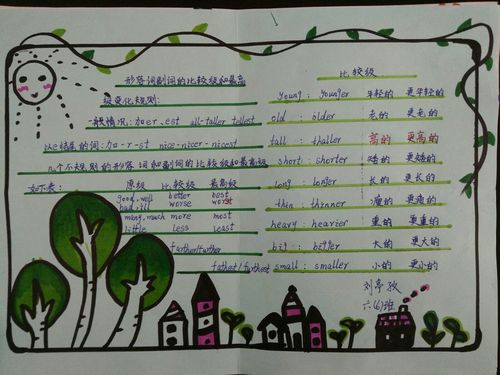 形容词副词的比较级和最高
级变化规则:
一般情况:加er、est all-taller tallest
以e结尾的词:加-r-st nice-nicer-nicest
几个不规则的形容词和副词的比较级和最高级
如下表: 原级 比较级 最高级
good,well better best
bad,ill worse worst
many,much more most
little less least
farther/further
farthest/furthest
比较级
young: younger 年轻的 更年轻的
old : older 老的 更老的
tall : thaller 高的 更高的
short: shorter 矮的 更矮的
long: longer 长的 更长的
thin : thinner 瘦的 更瘦的
heavy: hearier 重的 更重的
bit : better 大的 更大的
small : smaller 小的 更小的
刘亭孜
六(6)班